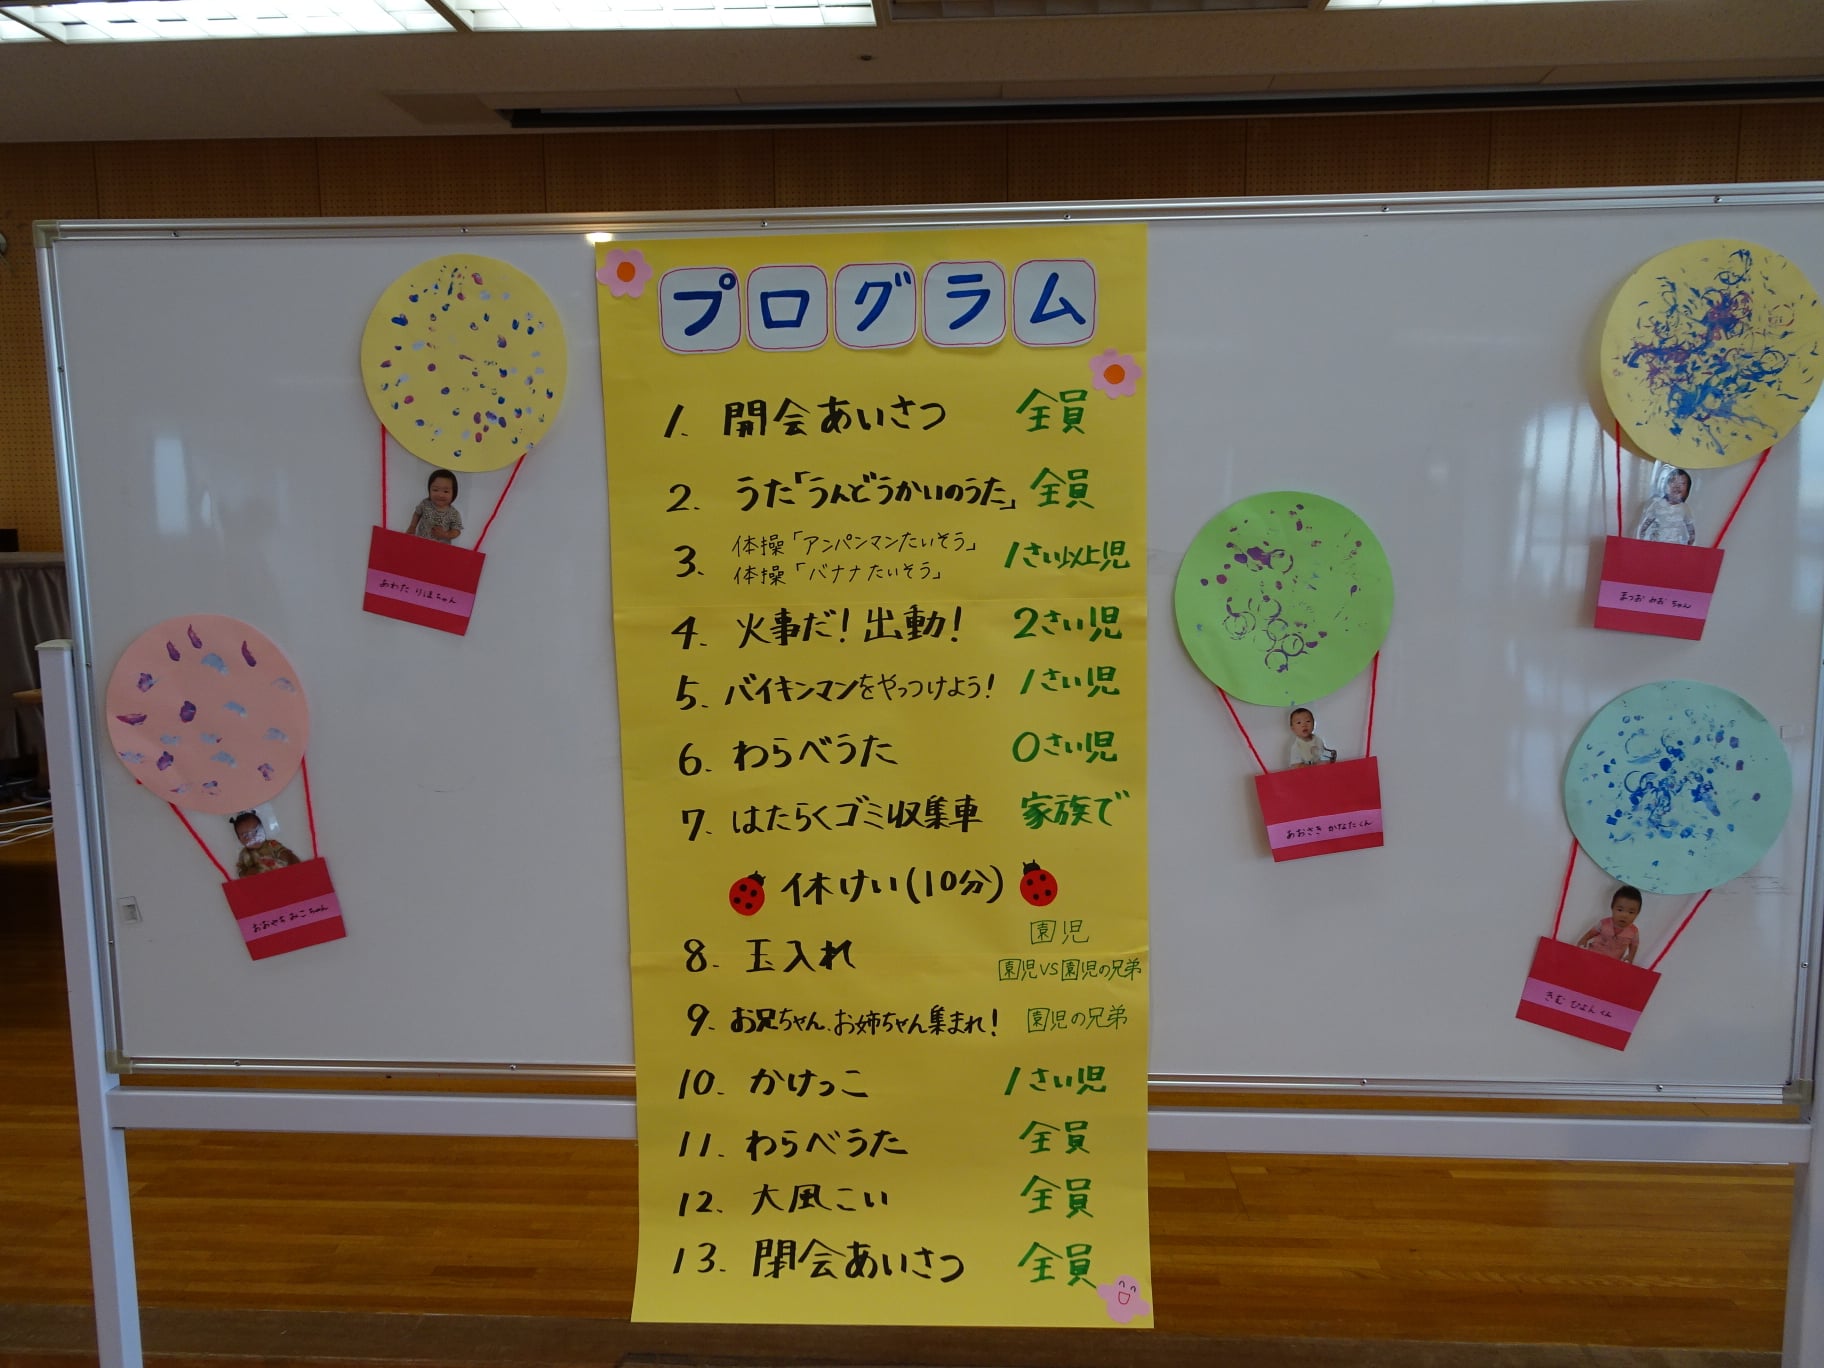 プログラム
1. 開会あいさつ 全員
2. うた「うんどうかいのうた」 全員
3. 体操「アンパンマンたいそう」 1さい以上児
体操「バナナたいそう」
4. 火事だ!出動! 2さい児
5. バイキンマンをやっつけよう! 1さい児
6. わらべうた 0さい児
7. はたらくゴミ収集車 家族で
休けい(10分)
8. 玉入れ 園児
園児VS園児の兄弟
9. お兄ちゃん、お姉ちゃん集まれ! 園児の兄弟
10. かけっこ 1さい児
11. わらべうた 全員
12. 大風こい 全員
13. 閉会あいさつ 全員
あわた りほちゃん
おおやち みこちゃん
あおさき かなたくん
まつお みお ちゃん
きむ ひょんくん